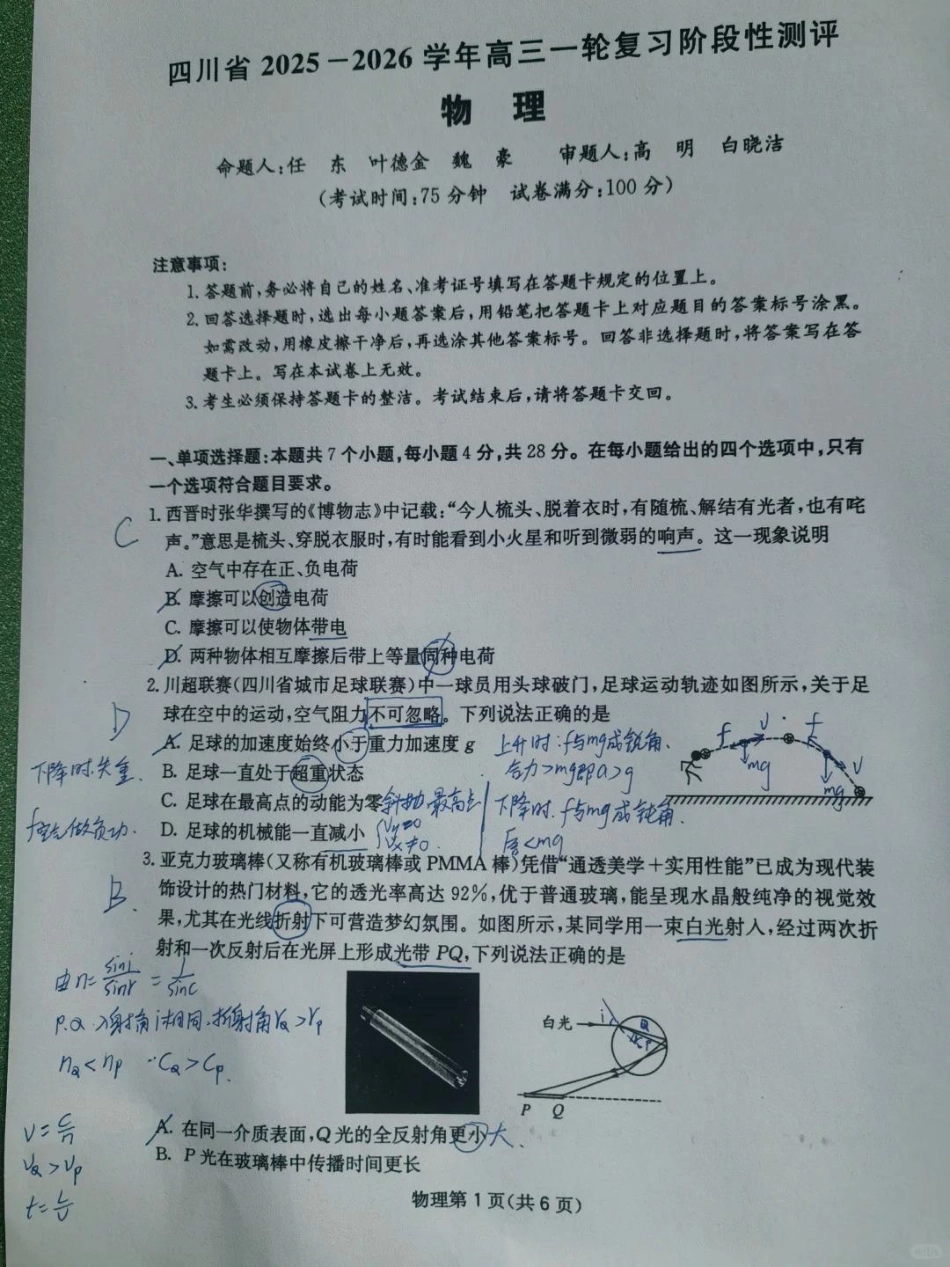 四川省 2025－2026 学年高三一轮复习阶段性测评
物 理
命题人:任 东 叶德金 魏 豪 审题人:高 明 白晓洁
(考试时间:75 分钟 试卷满分:100 分)
注意事项:
1. 答题前,务必将自己的姓名、准考证号填写在答题卡规定的位置上。
2. 回答选择题时,选出每小题答案后,用铅笔把答题卡上对应题目的答案标号涂黑。
如需改动,用橡皮擦干净后,再选涂其他答案标号。回答非选择题时,将答案写在答
题卡上。写在本试卷上无效。
3. 考生必须保持答题卡的整洁。考试结束后,请将答题卡交回。
一、单项选择题:本题共 7 个小题,每小题 4 分,共 28 分。在每小题给出的四个选项中,只有
一个选项符合题目要求。
C
1. 西晋时张华撰写的《博物志》中记载:“今人梳头、脱着衣时,有随梳、解结有光者,也有咤
声。”意思是梳头、穿脱衣服时,有时能看到小火星和听到微弱的响声。这一现象说明
A. 空气中存在正、负电荷
B. 摩擦可以创造电荷
C. 摩擦可以使物体带电
D. 两种物体相互摩擦后带上等量同种电荷
2. 川超联赛(四川省城市足球联赛)中一球员用头球破门,足球运动轨迹如图所示,关于足
D
球在空中的运动,空气阻力不可忽略。下列说法正确的是
A. 足球的加速度始终小于重力加速度 g
上升时:f与mg成锐角.
合力>mg即a>g
f V f
mg V
mg
下降时.失重.
B. 足球一直处于超重状态
C. 足球在最高点的动能为零
斜抛 最高点
Vy=0
Vx≠0.
下降时.f与mg成钝角.
<mg
做负功.
D. 足球的机械能一直减小
3. 亚克力玻璃棒(又称有机玻璃棒或 PMMA 棒)凭借“通透美学＋实用性能”已成为现代装
B.
饰设计的热门材料,它的透光率高达 92%,优于普通玻璃,能呈现水晶般纯净的视觉效
果,尤其在光线折射下可营造梦幻氛围。如图所示,某同学用一束白光射入,经过两次折
射和一次反射后在光屏上形成光带 PQ,下列说法正确的是
由n=sini/sinr=1/sinC
P.Q.入射角i相同.折射角rQ>rP
nQ<nP ∴CQ>CP.
白光
i
Q
P
P Q
A. 在同一介质表面,Q 光的全反射角更小
大.
B. P 光在玻璃棒中传播时间更长
V=c/n
VQ>VP
t=L/V
物理第 1 页(共 6 页)